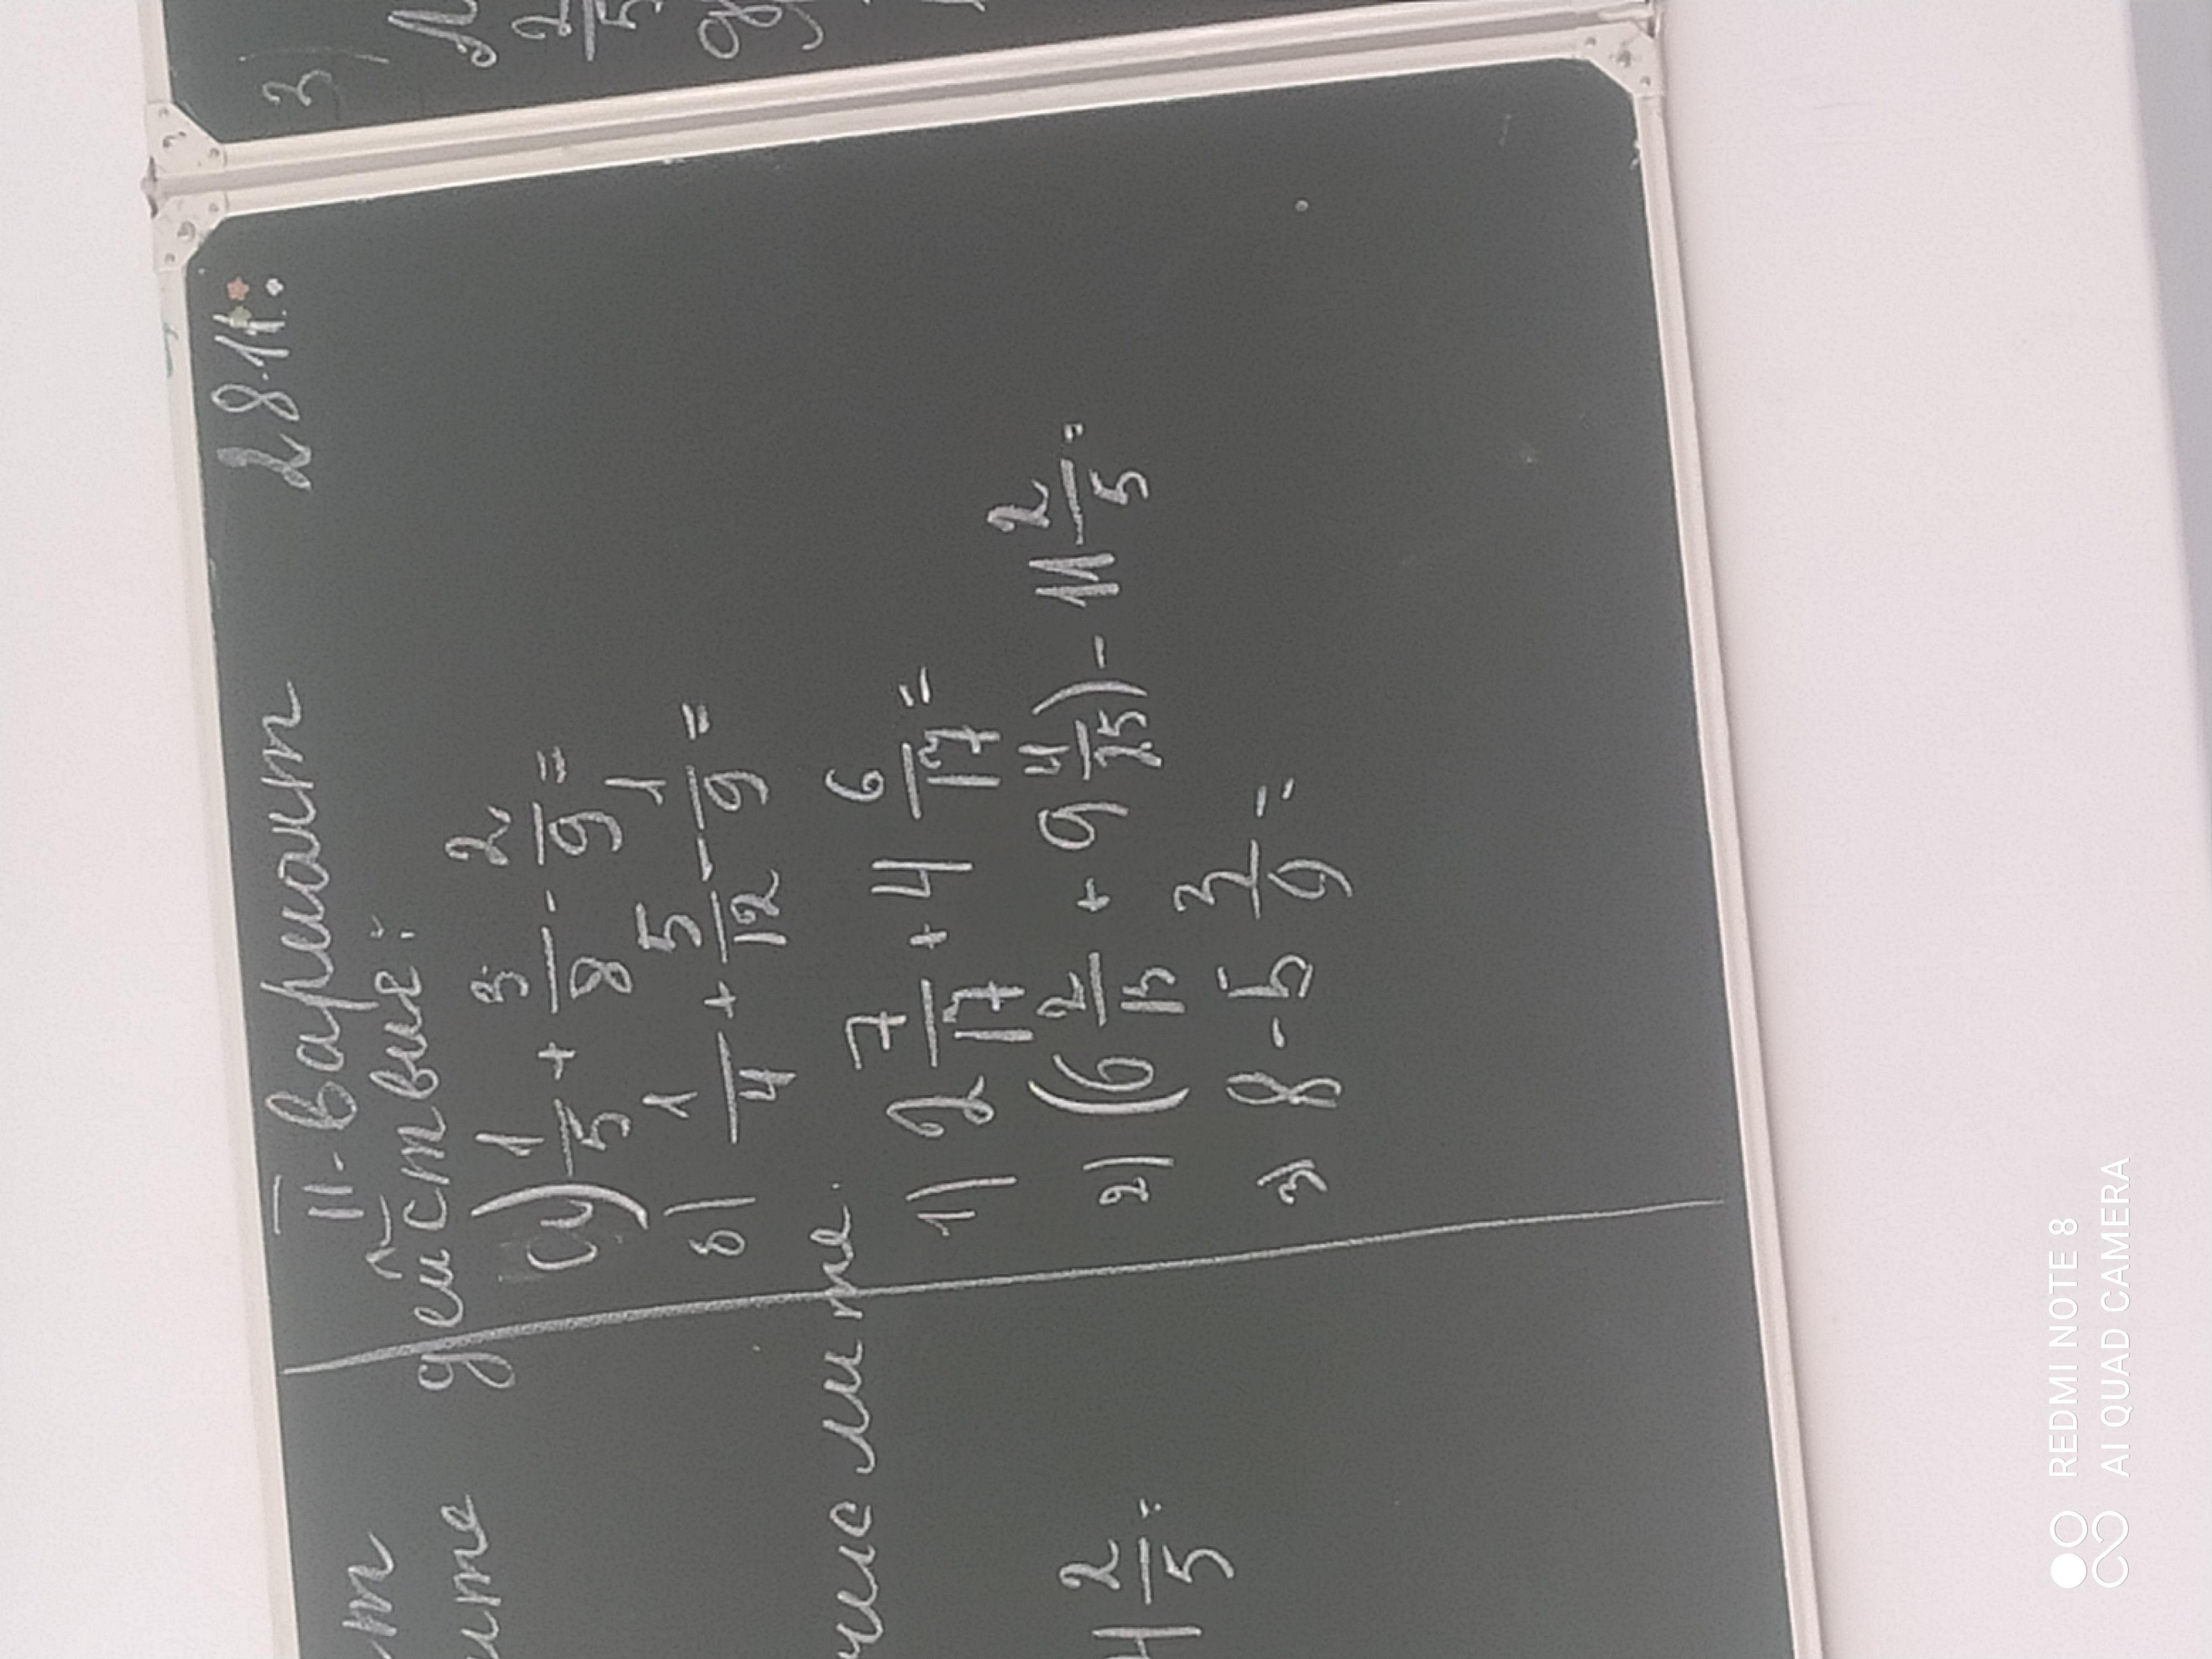 II-вариант 28.11.
действие:
а) 1/5 + 3/8 - 2/9 =
б) 1/4 + 5/12 - 1/9 =
1) 2 7/17 + 4 6/17 =
2) (6 2/15 + 9 4/25) - 11 2/5 =
3) 8 - 5 3/9 =
ите.
2/5 =
3)
2/5
REDMI NOTE 8
AI QUAD CAMERA